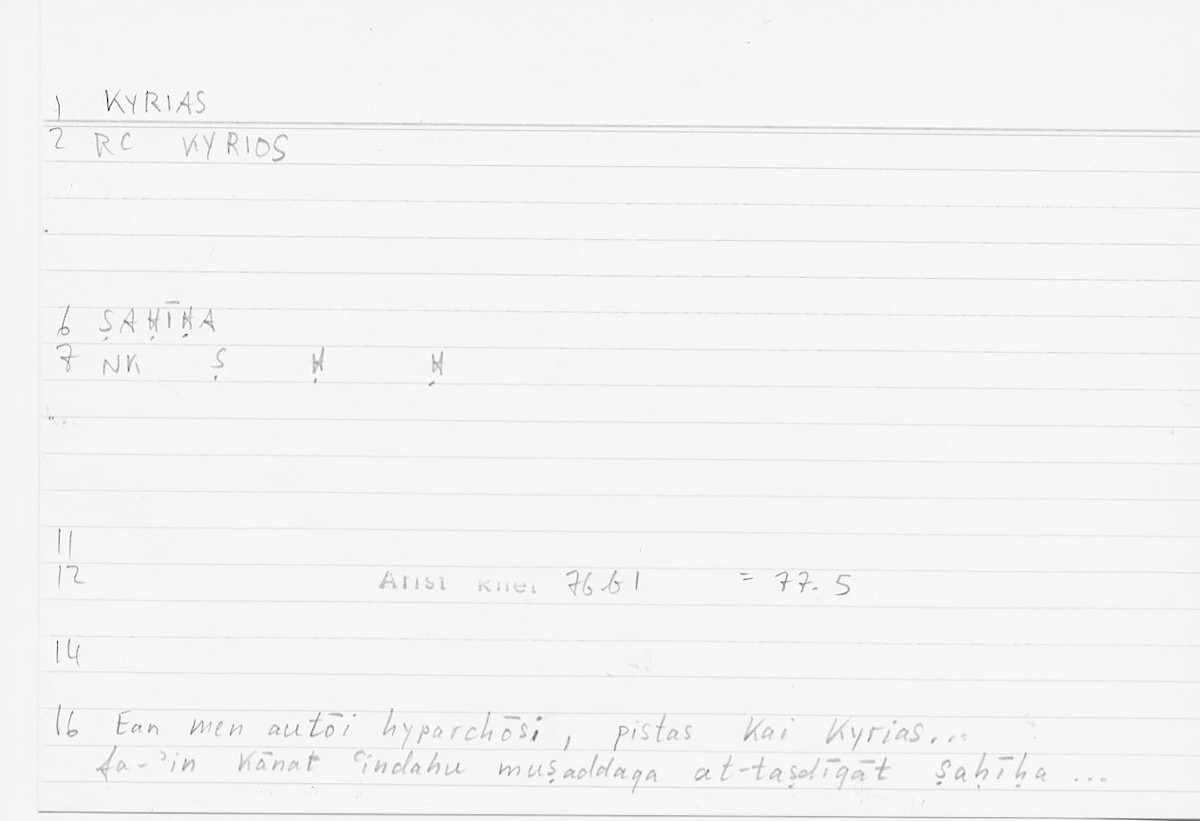 1 KYRIAS
2 RC KYRIOS
6 ṢAḤĪḤA
7 NK Ṣ Ḥ Ḥ
11
12 Arist Rhet 76 b 1 = 77. 5
14
16 Ean men autōi hyparchōsi, pistas kai kyrias...
fa-ʾin kānat ʿindahu muṣaddaqa at-taṣdīqāt ṣaḥīḥa ...